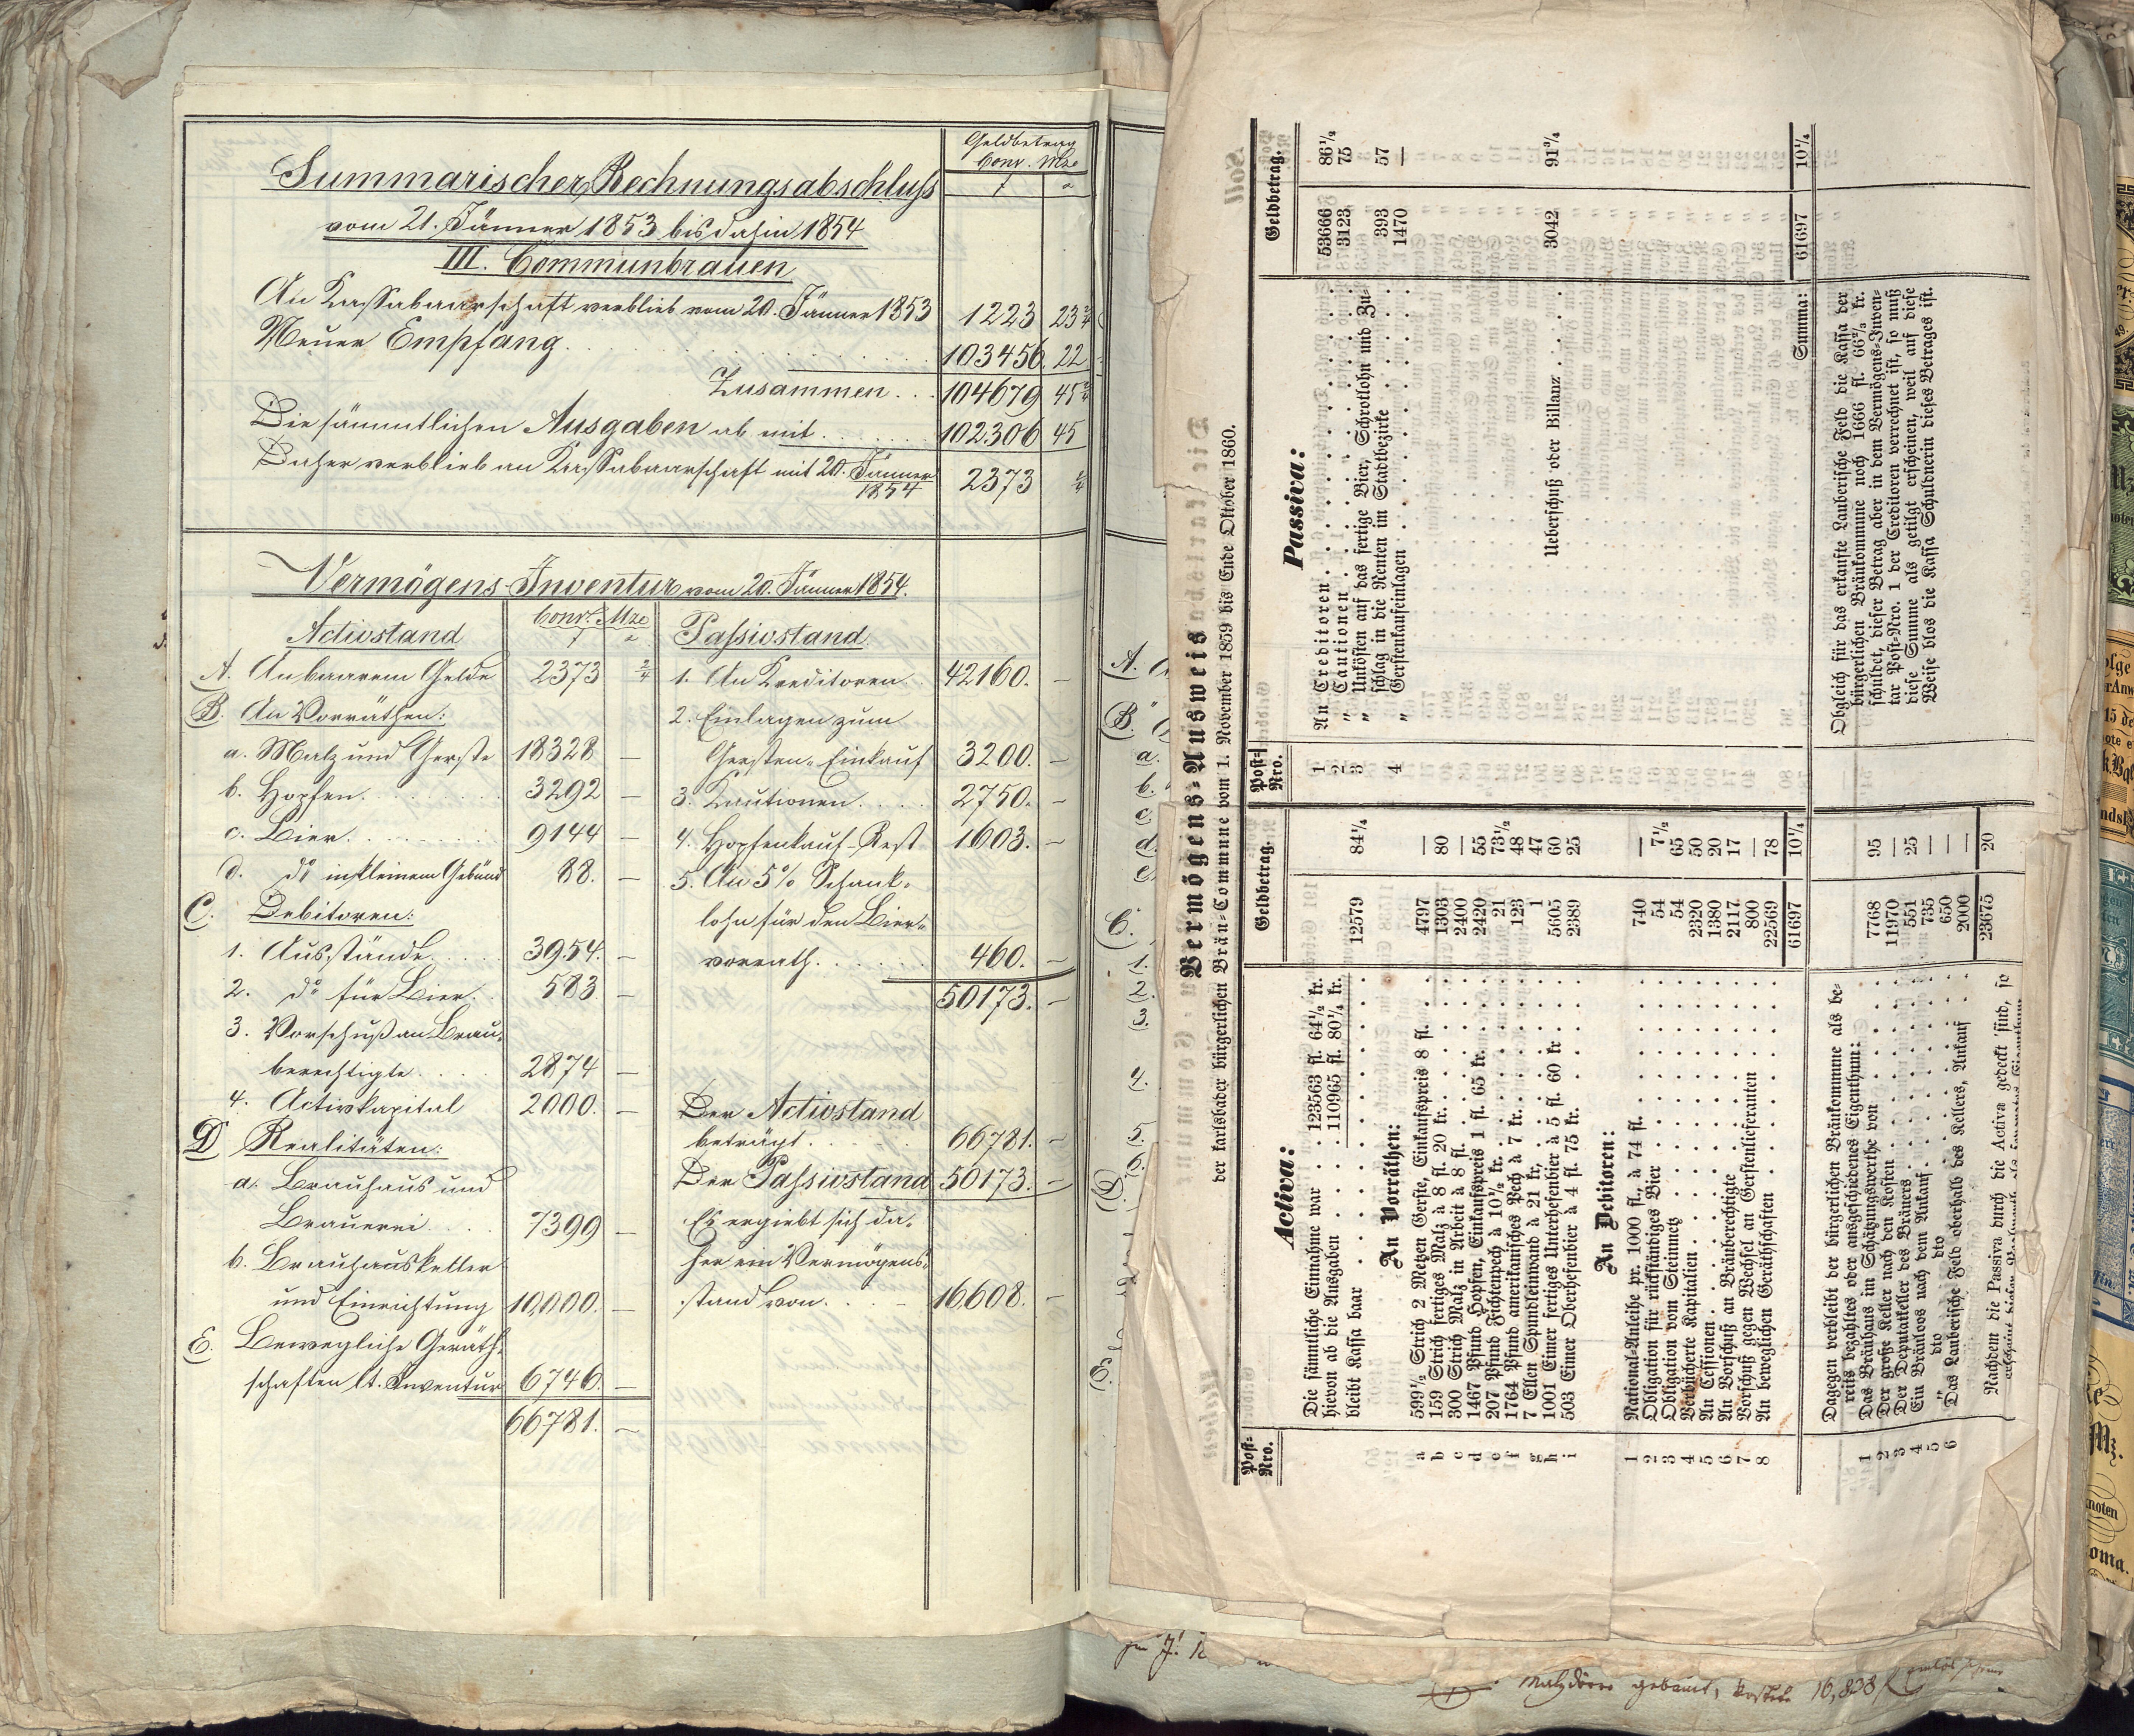 Geldbetrag
Conv. Mze
Summarischer Rechnungsabschluss
vom 21. Jänner 1853 bis dahin 1854
III. Communbrauen
An Kassabaarschaft verblieb vom 20. Jänner 1853 1223 23 2/4
Neuer Empfang 103456. 22
Zusammen 104679 45 2/4
Die sämmtlichen Ausgaben ab mit 102306 45
Daher verblieb an Kassabaarschaft mit 20. Jänner 1854 2373 2/4
Vermögens-Inventur vom 20. Jänner 1854.
Activstand
Convt. Mze
A. An baarem Gelde 2373 2/4
B. An Vorräthen:
a. Malz und Gerste 18328 —
b. Hopfen 3292 —
c. Bier 9144 —
d. do in kleinem Gebünd 88. —
C. Debitoren:
1. Ausstände 3954. —
2. do für Bier 583 —
3. Vorschuß an Brau-
berechtigte 2874 —
4. Activkapital 2000. —
D Realitäten:
a. Brauhaus und
Brauerei 7399 —
b. Brauhauskeller
und Einrichtung 10,000. —
E. Bewegliche Geräth-
schaften lt. Inventur 6746. —
66781. —
Passivstand
1. An Kreditoren 42160. —
2. Einlagen zum
Gersten-Einkauf 3200. —
3. Kautionen 2750. —
4. Hopfenkauf-Rest 1603. —
5. An 5% Schank-
lohn für den Bier-
vorrath 460. —
50173. —
Der Activstand
beträgt 66781. —
Der Passivstand 50173. —
Es ergiebt sich da-
her ein Vermögens-
stand von 16,608. —
A.
B.
a.
b.
c.
d.
e.
C.
1.
2.
3.
4.
5.
6.
D.
E.
Vermögens-Ausweis
der karlsbader bürgerlichen Bräu-Commune vom 1. November 1859 bis Ende Oktober 1860.
Post-Nro.
Activa:
Geldbetrag.
Die sämmtliche Einnahme war . . 123563 fl. 64½ kr.
hievon ab die Ausgaben . . . 110965 fl. 80¼ kr.
bleibt Kassa baar 12579 84¼
An Vorräthen:
a 599½ Strich 2 Metzen Gerste, Einkaufspreis 8 fl. 4797 —
b 159 Strich fertiges Malz à 8 fl. 20 kr. 1303 80
c 300 Strich Malz in Arbeit à 8 fl. 2400 —
d 1467 Pfund Hopfen, Einkaufspreis 1 fl. 65 kr. 2420 55
e 207 Pfund Fichtenpech à 10½ kr. 21 73½
f 1764 Pfund amerikanisches Pech à 7 kr. 123 48
g 7 Ellen Spundleinwand à 21 kr. 1 47
h 1001 Eimer fertiges Unterhefenbier à 5 fl. 60 kr 5605 60
i 503 Eimer Oberhefenbier à 4 fl. 75 kr. 2389 25
An Debitoren:
1 National-Anleihe pr. 1000 fl., à 74 fl. 740 —
2 Obligation für rückständiges Bier 54 7½
3 Obligation vom Steinmetz 54 65
4 Verbücherte Kapitalien 2320 50
5 An Cessionen 1380 20
6 An Vorschuß an Bräuberechtigte 2117 17
7 Vorschuß gegen Wechsel an Gerstenlieferanten 800 —
8 An beweglichen Geräthschaften 22569 78
61697 10¼
Dagegen verbleibt der bürgerlichen Bräukommune als be-
reits bezahltes oder ausgeschiedenes Eigenthum:
1 Das Bräuhaus im Schätzungswerthe von 7768 95
2 Der große Keller nach den Kosten 11970 —
3 Der Deputatkeller des Bräuers 551 25
4 Ein Bräuloos nach dem Ankauf 735 —
5 dto dto 650 —
6 Das Lauberische Feld oberhalb des Kellers, Ankauf 2000 —
23675 20
Nachdem die Passiva durch die Activa gedeckt sind, so
Post-Nro.
Passiva:
Geldbetrag.
1 An Creditoren 53666 86½
2 „ Cautionen 3123 75
3 „ Unkösten auf das fertige Bier, Schrotlohn und Zu-
schlag in die Renten im Stadtbezirke 393 57
4 „ Gerstenkaufseinlagen 1470 —
Ueberschuß oder Billanz 3042 91¾
Summa: 61697 10¼
Obgleich für das erkaufte Lauberische Feld die Kassa der
bürgerlichen Bräukommune noch 1666 fl. 66⅔ kr.
schuldet, dieser Betrag aber in dem Vermögens-Inven-
tar Post-Nro. 1 der Creditoren verrechnet ist, so muß
diese Summe als getilgt erscheinen, weil auf diese
Weise blos die Kassa Schuldnerin dieses Betrages ist.
Malzdörre gebaut, kostete 16,838